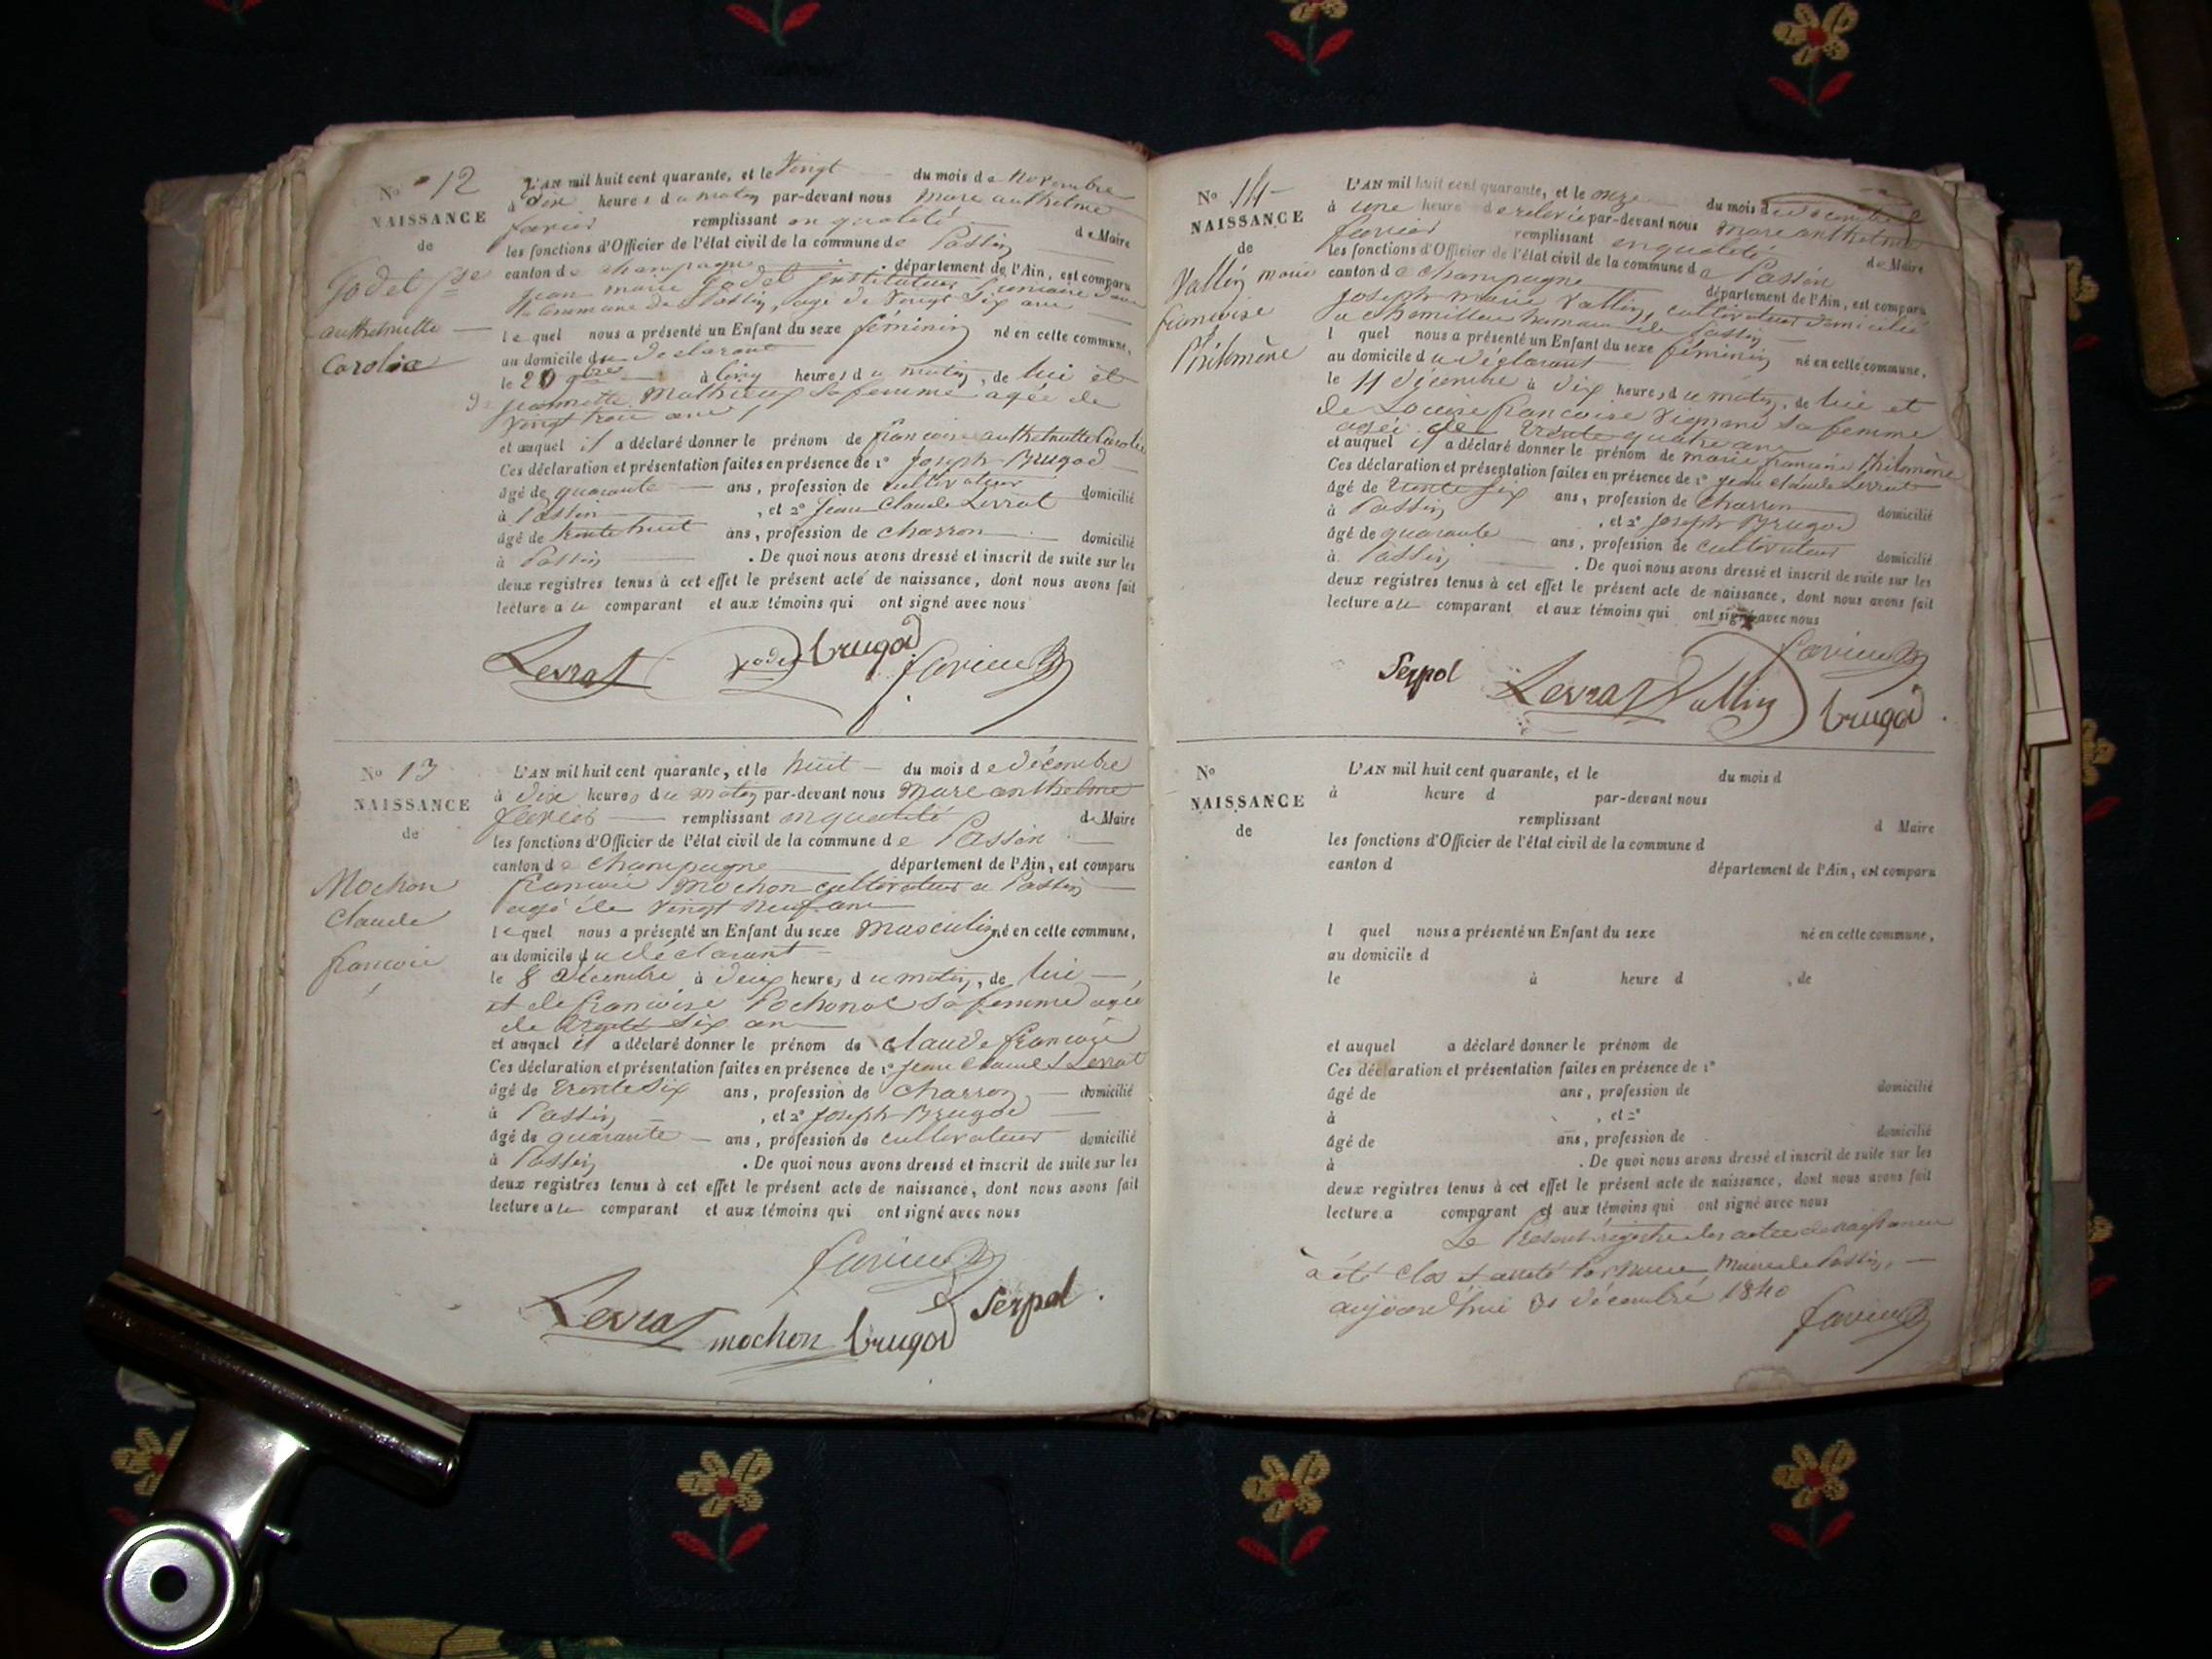 No 12
NAISSANCE
de
Godel fse
anthelmette
Caroline
L'AN mil huit cent quarante, et le Vingt du mois de Novembre
à dix heures du matin par-devant nous Marc anthelme
favier remplissant en qualité de Maire
les fonctions d'Officier de l'état civil de la commune de Passin
canton de Champagne département de l'Ain, est comparu
jean marie Godel Instituteur Primaire dans
la Commune de Passin, age de Vingt Six ans
lequel nous a présenté un Enfant du sexe féminin né en cette commune,
au domicile du déclarant
le 20 9bre à cinq heures du matin, de lui et
De jeannette Mathieux Sa femme agée de
Vingt trois ans
et auquel il a déclaré donner le prénom de francoise anthelmette Caroline
Ces déclaration et présentation faites en présence de 1° Joseph Brugod
âgé de quarante ans, profession de cultivateur domicilié
à Passin , et 2° Jean Claude Levrat
âgé de trente huit ans, profession de charron domicilié
à Passin . De quoi nous avons dressé et inscrit de suite sur les
deux registres tenus à cet effet le présent acte de naissance, dont nous avons fait
lecture au comparant et aux témoins qui ont signé avec nous
Levrat Godel brugod favier
No 13
NAISSANCE
de
Mochon
Claude
francois
L'AN mil huit cent quarante, et le huit du mois de décembre
à dix heures du matin par-devant nous Marc anthelme
favier remplissant en qualité de Maire
les fonctions d'Officier de l'état civil de la commune de Passin
canton de Champagne département de l'Ain, est comparu
francois Mochon cultivateur a Passin
agé de Vingt neuf ans
lequel nous a présenté un Enfant du sexe Masculin né en cette commune,
au domicile du déclarant
le 8 décembre à deux heures du matin, de lui
et de francoise Pochonat Sa femme agée
de Six an
et auquel il a déclaré donner le prénom de claude francois
Ces déclaration et présentation faites en présence de 1° jean Claude Levrat
âgé de trente Six ans, profession de charron domicilié
à Passin , et 2° Joseph Brugod
âgé de quarante ans, profession de cultivateur domicilié
à Passin . De quoi nous avons dressé et inscrit de suite sur les
deux registres tenus à cet effet le présent acte de naissance, dont nous avons fait
lecture au comparant et aux témoins qui ont signé avec nous
favier
Levrat mochon brugod Serpol
No 14
NAISSANCE
de
Vallin marie
francoise
Philomène
L'AN mil huit cent quarante, et le onze du mois de décembre
à une heure de relevée par-devant nous Marc anthelme
favier remplissant en qualité de Maire
les fonctions d'Officier de l'état civil de la commune de Passin
canton de Champagne département de l'Ain, est comparu
Joseph marie Vallin, cultivateur domicilié
a chemillieu hameau de Passin
l quel nous a présenté un Enfant du sexe féminin né en cette commune,
au domicile du déclarant
le 11 décembre à dix heures du matin, de lui et
de Louise francoise Vignand Sa femme
agée de trente quatre ans
et auquel il a déclaré donner le prénom de marie francoise Philomène
Ces déclaration et présentation faites en présence de 1° jean claude Levrat
âgé de trente Six ans, profession de charron domicilié
à Passin , et 2° Joseph Brugod
âgé de quarante ans, profession de cultivateur domicilié
à Passin . De quoi nous avons dressé et inscrit de suite sur les
deux registres tenus à cet effet le présent acte de naissance, dont nous avons fait
lecture au comparant et aux témoins qui ont signé avec nous
favier
Serpol Levrat Vallin brugod
No
NAISSANCE
de
L'AN mil huit cent quarante, et le du mois d
à heure d par-devant nous
remplissant d Maire
les fonctions d'Officier de l'état civil de la commune d
canton d département de l'Ain, est comparu
l quel nous a présenté un Enfant du sexe né en cette commune,
au domicile d
le à heure d , de
et auquel a déclaré donner le prénom de
Ces déclaration et présentation faites en présence de 1°
âgé de ans, profession de domicilié
à , et 2°
âgé de ans, profession de domicilié
à . De quoi nous avons dressé et inscrit de suite sur les
deux registres tenus à cet effet le présent acte de naissance, dont nous avons fait
lecture a comparant et aux témoins qui ont signé avec nous
Le Présent registre des actes de naissances
à été Clos et arreté Par Nous Maire de Passin,
aujourd'hui 31 décembre 1840
favier